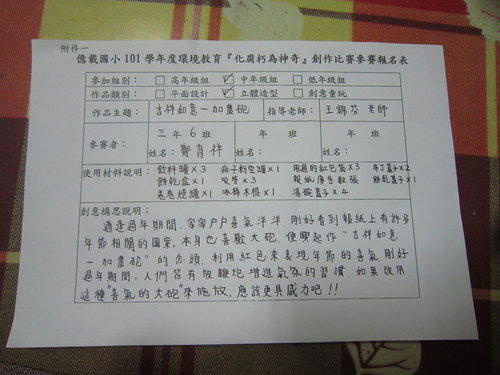 附件一
億載國小 101 學年度環境教育『化腐朽為神奇』創作比賽參賽報名表
參加組別: □ 高年級組 ☑ 中年級組 □ 低年級組
作品類別: □ 平面設計 ☑ 立體造型 □ 創意童玩
作品主題: 吉祥如意一加農砲 指導老師: 王錦芬 老師
參賽者: 三 年 6 班 年 班 年 班
姓名: 鄭育祥 姓名: 姓名:
使用材料說明: 飲料罐×3 梅子粉空罐×1 用過的紅包袋×3 布丁蓋子×2
餅乾盒×1 吸管×3 報紙廣告數張 餅乾蓋子×1
卷卷燒罐×1 冰棒木棍×1 湯碗蓋子×4
創意構思說明:
適逢過年期間,家家戶戶喜氣洋洋,剛好看到報紙上有許多
年節相關的圖案,本身也喜歡大砲,便興起作"吉祥如意
一加農砲"的念頭,利用紅包來表現年節的喜氣,剛好
過年期間,人們皆有放鞭炮增進氣氛的習慣,如果改用
這種"喜氣的大砲"來施放,應該更具威力吧!!